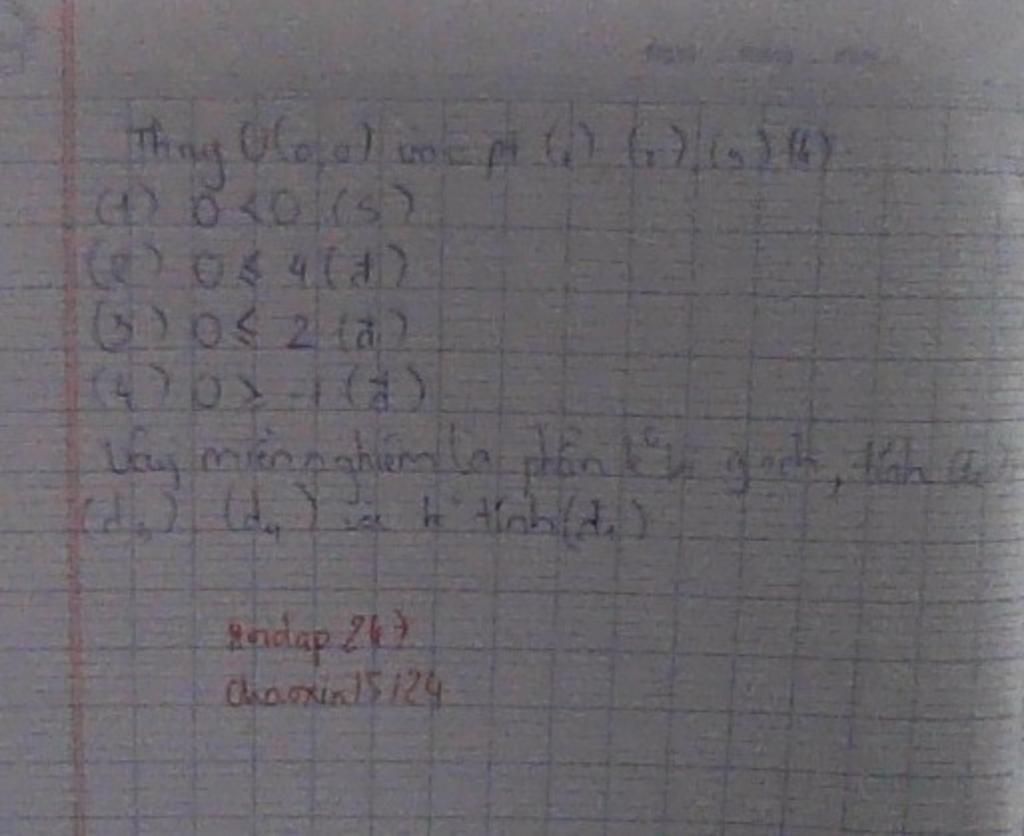 Thay O(0,0) vào pt (1) (2) (3) (4)
(1) 0 < 0 (S)
(2) 0 ≤ 4 (đ)
(3) 0 ≤ 2 (đ)
(4) 0 > -1 (đ)
Vậy miền nghiệm là phần k bị gạch, tính
(d₃) (d₄) và k tính (d₁)
hoidap 247
chaoxin15124